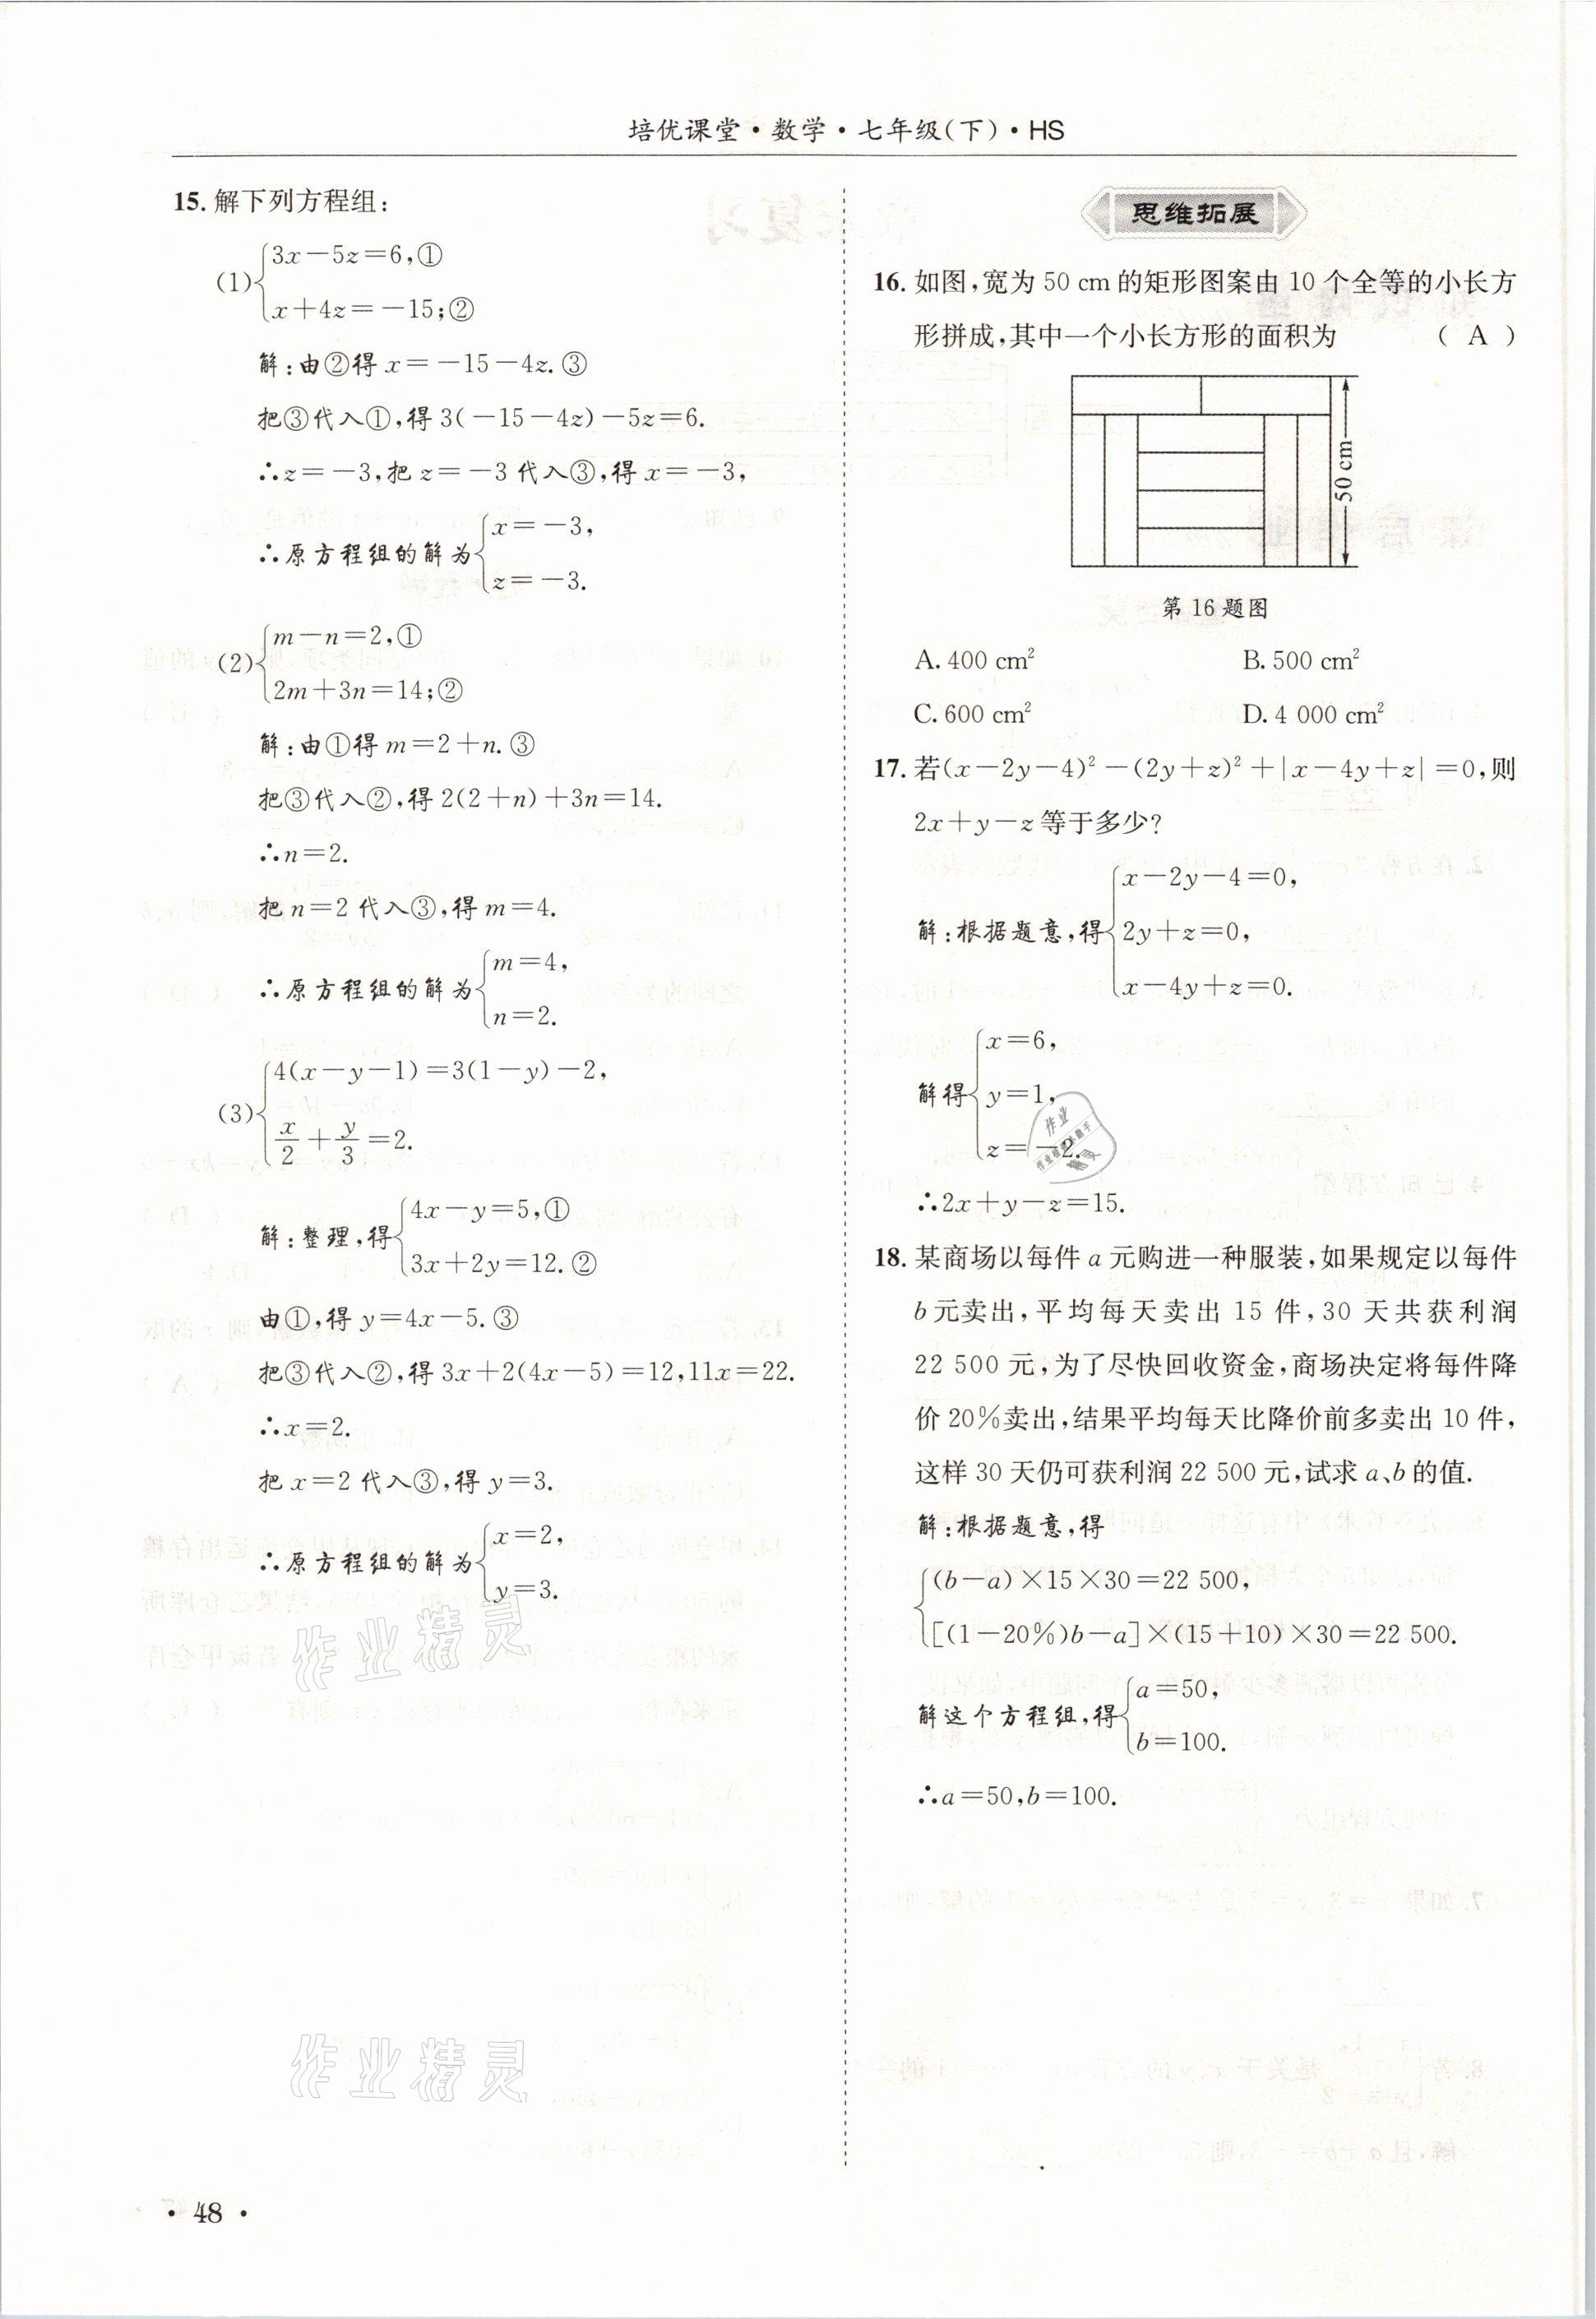 培优课堂·数学·七年级(下)·HS
15. 解下列方程组:
(1){3x－5z＝6,①
x＋4z＝－15;②
解:由②得 x＝－15－4z.③
把③代入①,得 3(－15－4z)－5z＝6.
∴z＝－3,把 z＝－3 代入③,得 x＝－3,
∴原方程组的解为{x＝－3,
z＝－3.
(2){m－n＝2,①
2m＋3n＝14;②
解:由①得 m＝2＋n.③
把③代入②,得 2(2＋n)＋3n＝14.
∴n＝2.
把 n＝2 代入③,得 m＝4.
∴原方程组的解为{m＝4,
n＝2.
(3){4(x－y－1)＝3(1－y)－2,
x/2＋y/3＝2.
解:整理,得{4x－y＝5,①
3x＋2y＝12.②
由①,得 y＝4x－5.③
把③代入②,得 3x＋2(4x－5)＝12,11x＝22.
∴x＝2.
把 x＝2 代入③,得 y＝3.
∴原方程组的解为{x＝2,
y＝3.
作业精灵
作业精灵
· 48 ·
思维拓展
16. 如图,宽为 50 cm 的矩形图案由 10 个全等的小长方
形拼成,其中一个小长方形的面积为 ( A )
50 cm
第 16 题图
A. 400 cm² B. 500 cm²
C. 600 cm² D. 4 000 cm²
17. 若(x－2y－4)²－(2y＋z)²＋|x－4y＋z|＝0,则
2x＋y－z 等于多少?
解:根据题意,得{x－2y－4＝0,
2y＋z＝0,
x－4y＋z＝0.
解得{x＝6,
y＝1,
z＝－2.
∴2x＋y－z＝15.
18. 某商场以每件 a 元购进一种服装,如果规定以每件
b 元卖出,平均每天卖出 15 件,30 天共获利润
22 500 元,为了尽快回收资金,商场决定将每件降
价 20%卖出,结果平均每天比降价前多卖出 10 件,
这样 30 天仍可获利润 22 500 元,试求 a、b 的值.
解:根据题意,得
{(b－a)×15×30＝22 500,
[(1－20%)b－a]×(15＋10)×30＝22 500.
解这个方程组,得{a＝50,
b＝100.
∴a＝50,b＝100.